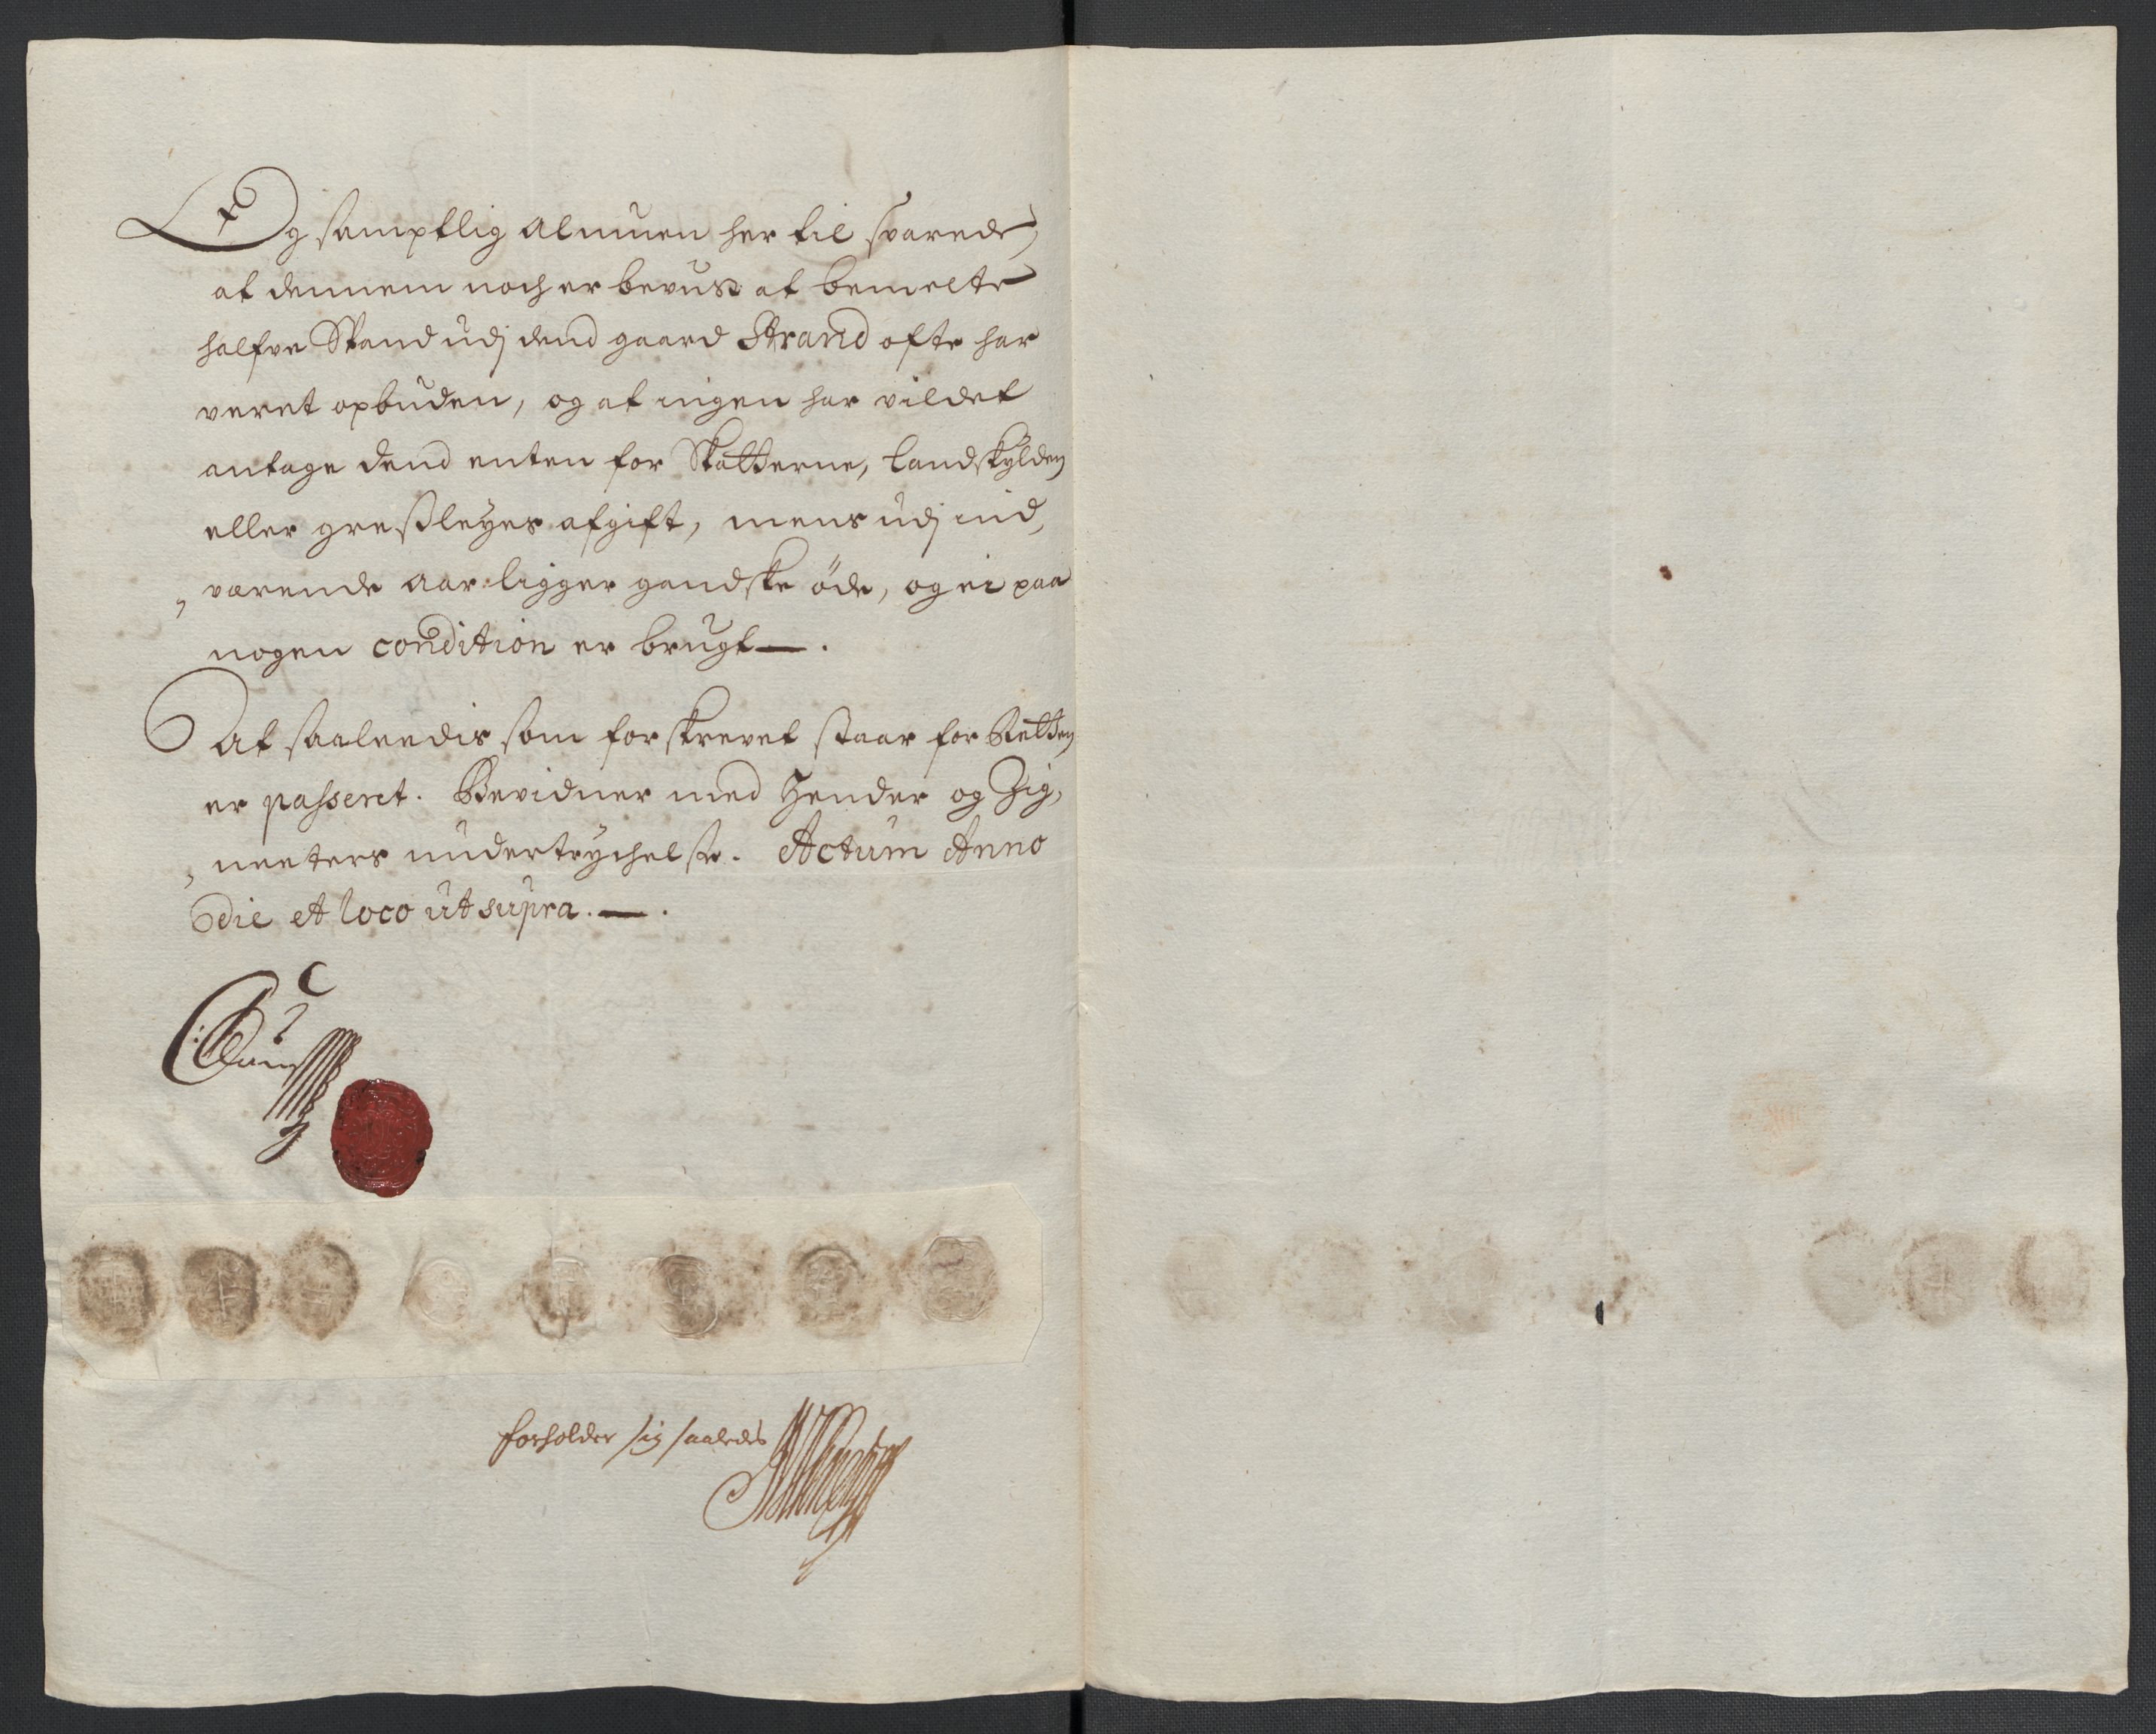 Og samptlig Almuen her til svarede,
at dennem noch er bevust at bemelte
halfve Spand udj dend gaard Strand ofte har
veret opbuden, og at ingen har vildet
antage dend enten for Skatterne, Landskylden
eller gresleyes afgift, mens udj ind,
„ værende Aar ligger gandske öde, og ei paa
nogen condition er brugt — .
At saaleedis som forskrevet staar for Retten
er passeret. Bevidner med Hender og Zig,
„ neeters undertrychelse. Actum Anno
die et loco ut supra. — .
forholder sig saaledes